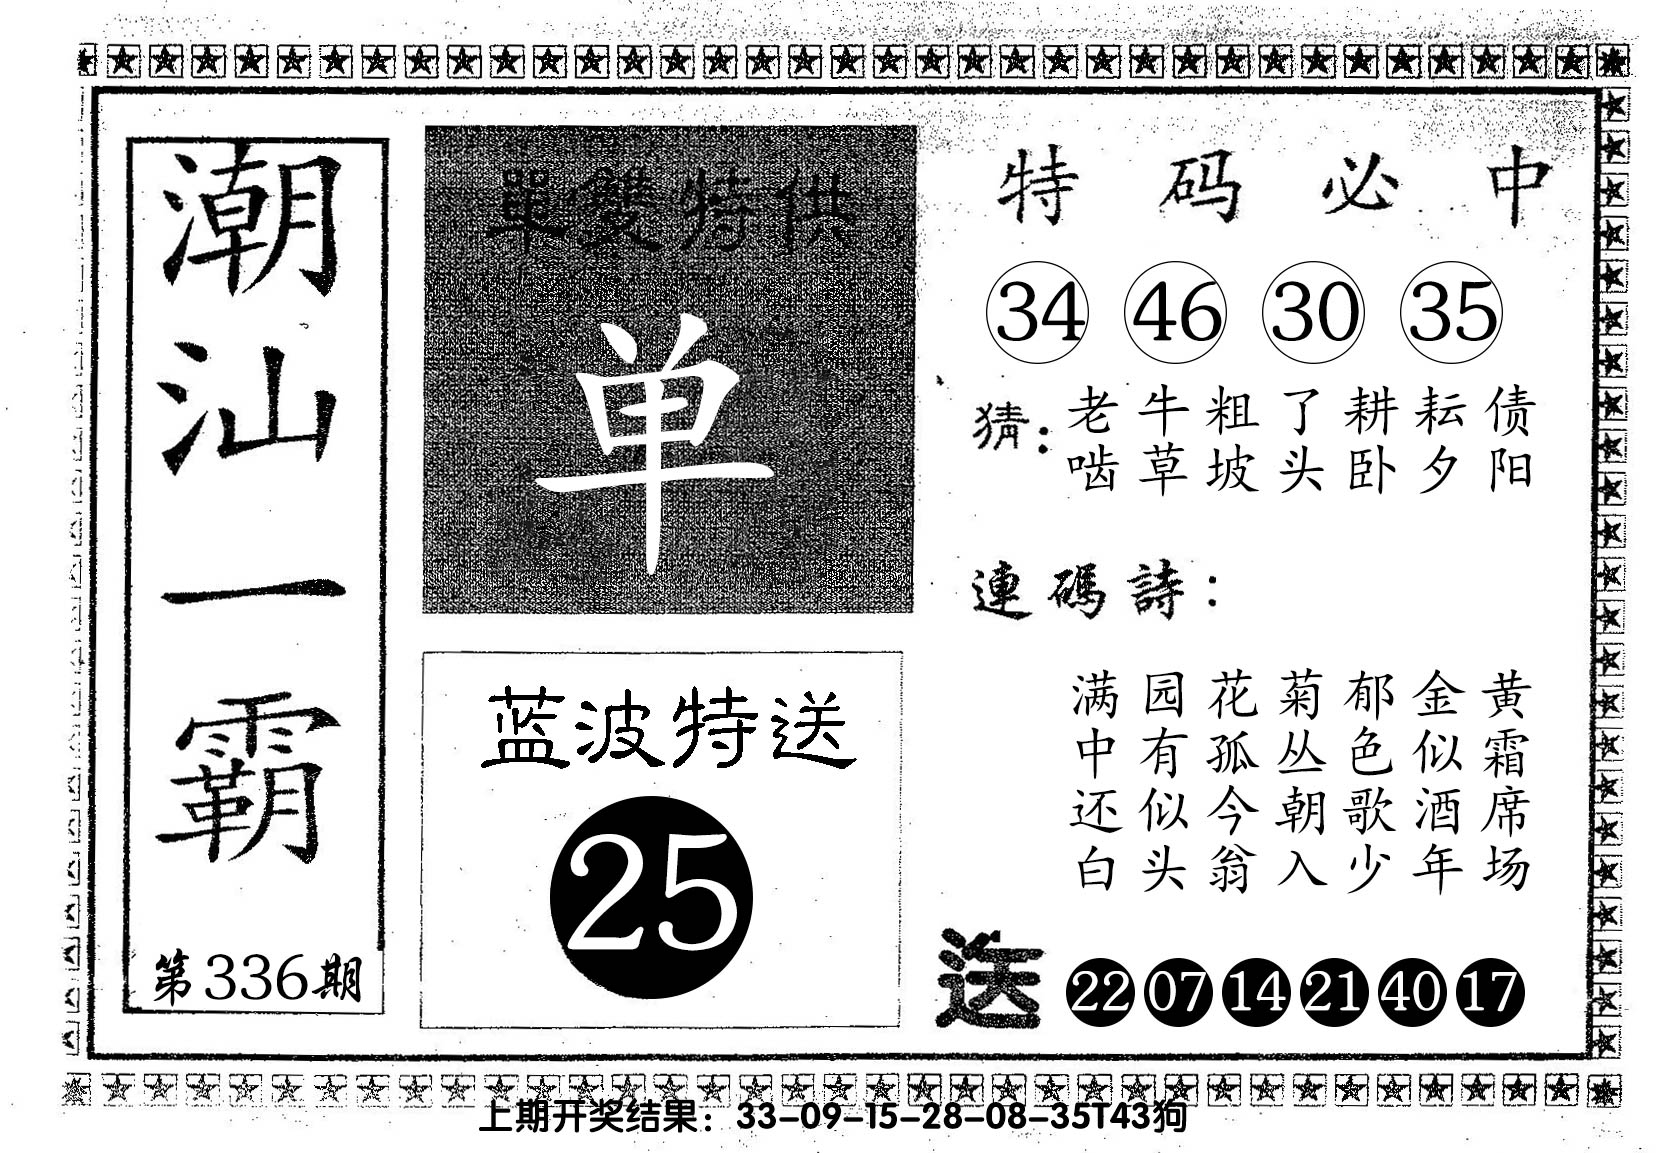 潮汕一霸
第336期
單雙特供
单
蓝波特送
25
特码必中
34 46 30 35
猜：
老牛粗了耕耘债
啮草坡头卧夕阳
連碼詩：
满园花菊郁金黄
中有孤丛色似霜
还似今朝歌酒席
白头翁入少年场
送 22 07 14 21 40 17
上期开奖结果：33-09-15-28-08-35T43狗